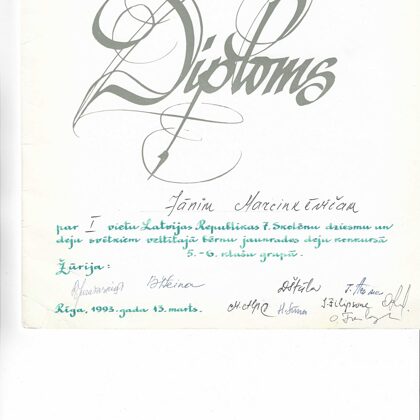 Diploms
Jānim Marcinkēvičam
par I vietu Latvijas Republikas 7. Skolēnu dziesmu un
deju svētkiem veltītajā bērnu jaunrades deju konkursā
5.-6. klašu grupā.
Žūrija:
Rīga, 1993. gada 13. marts.